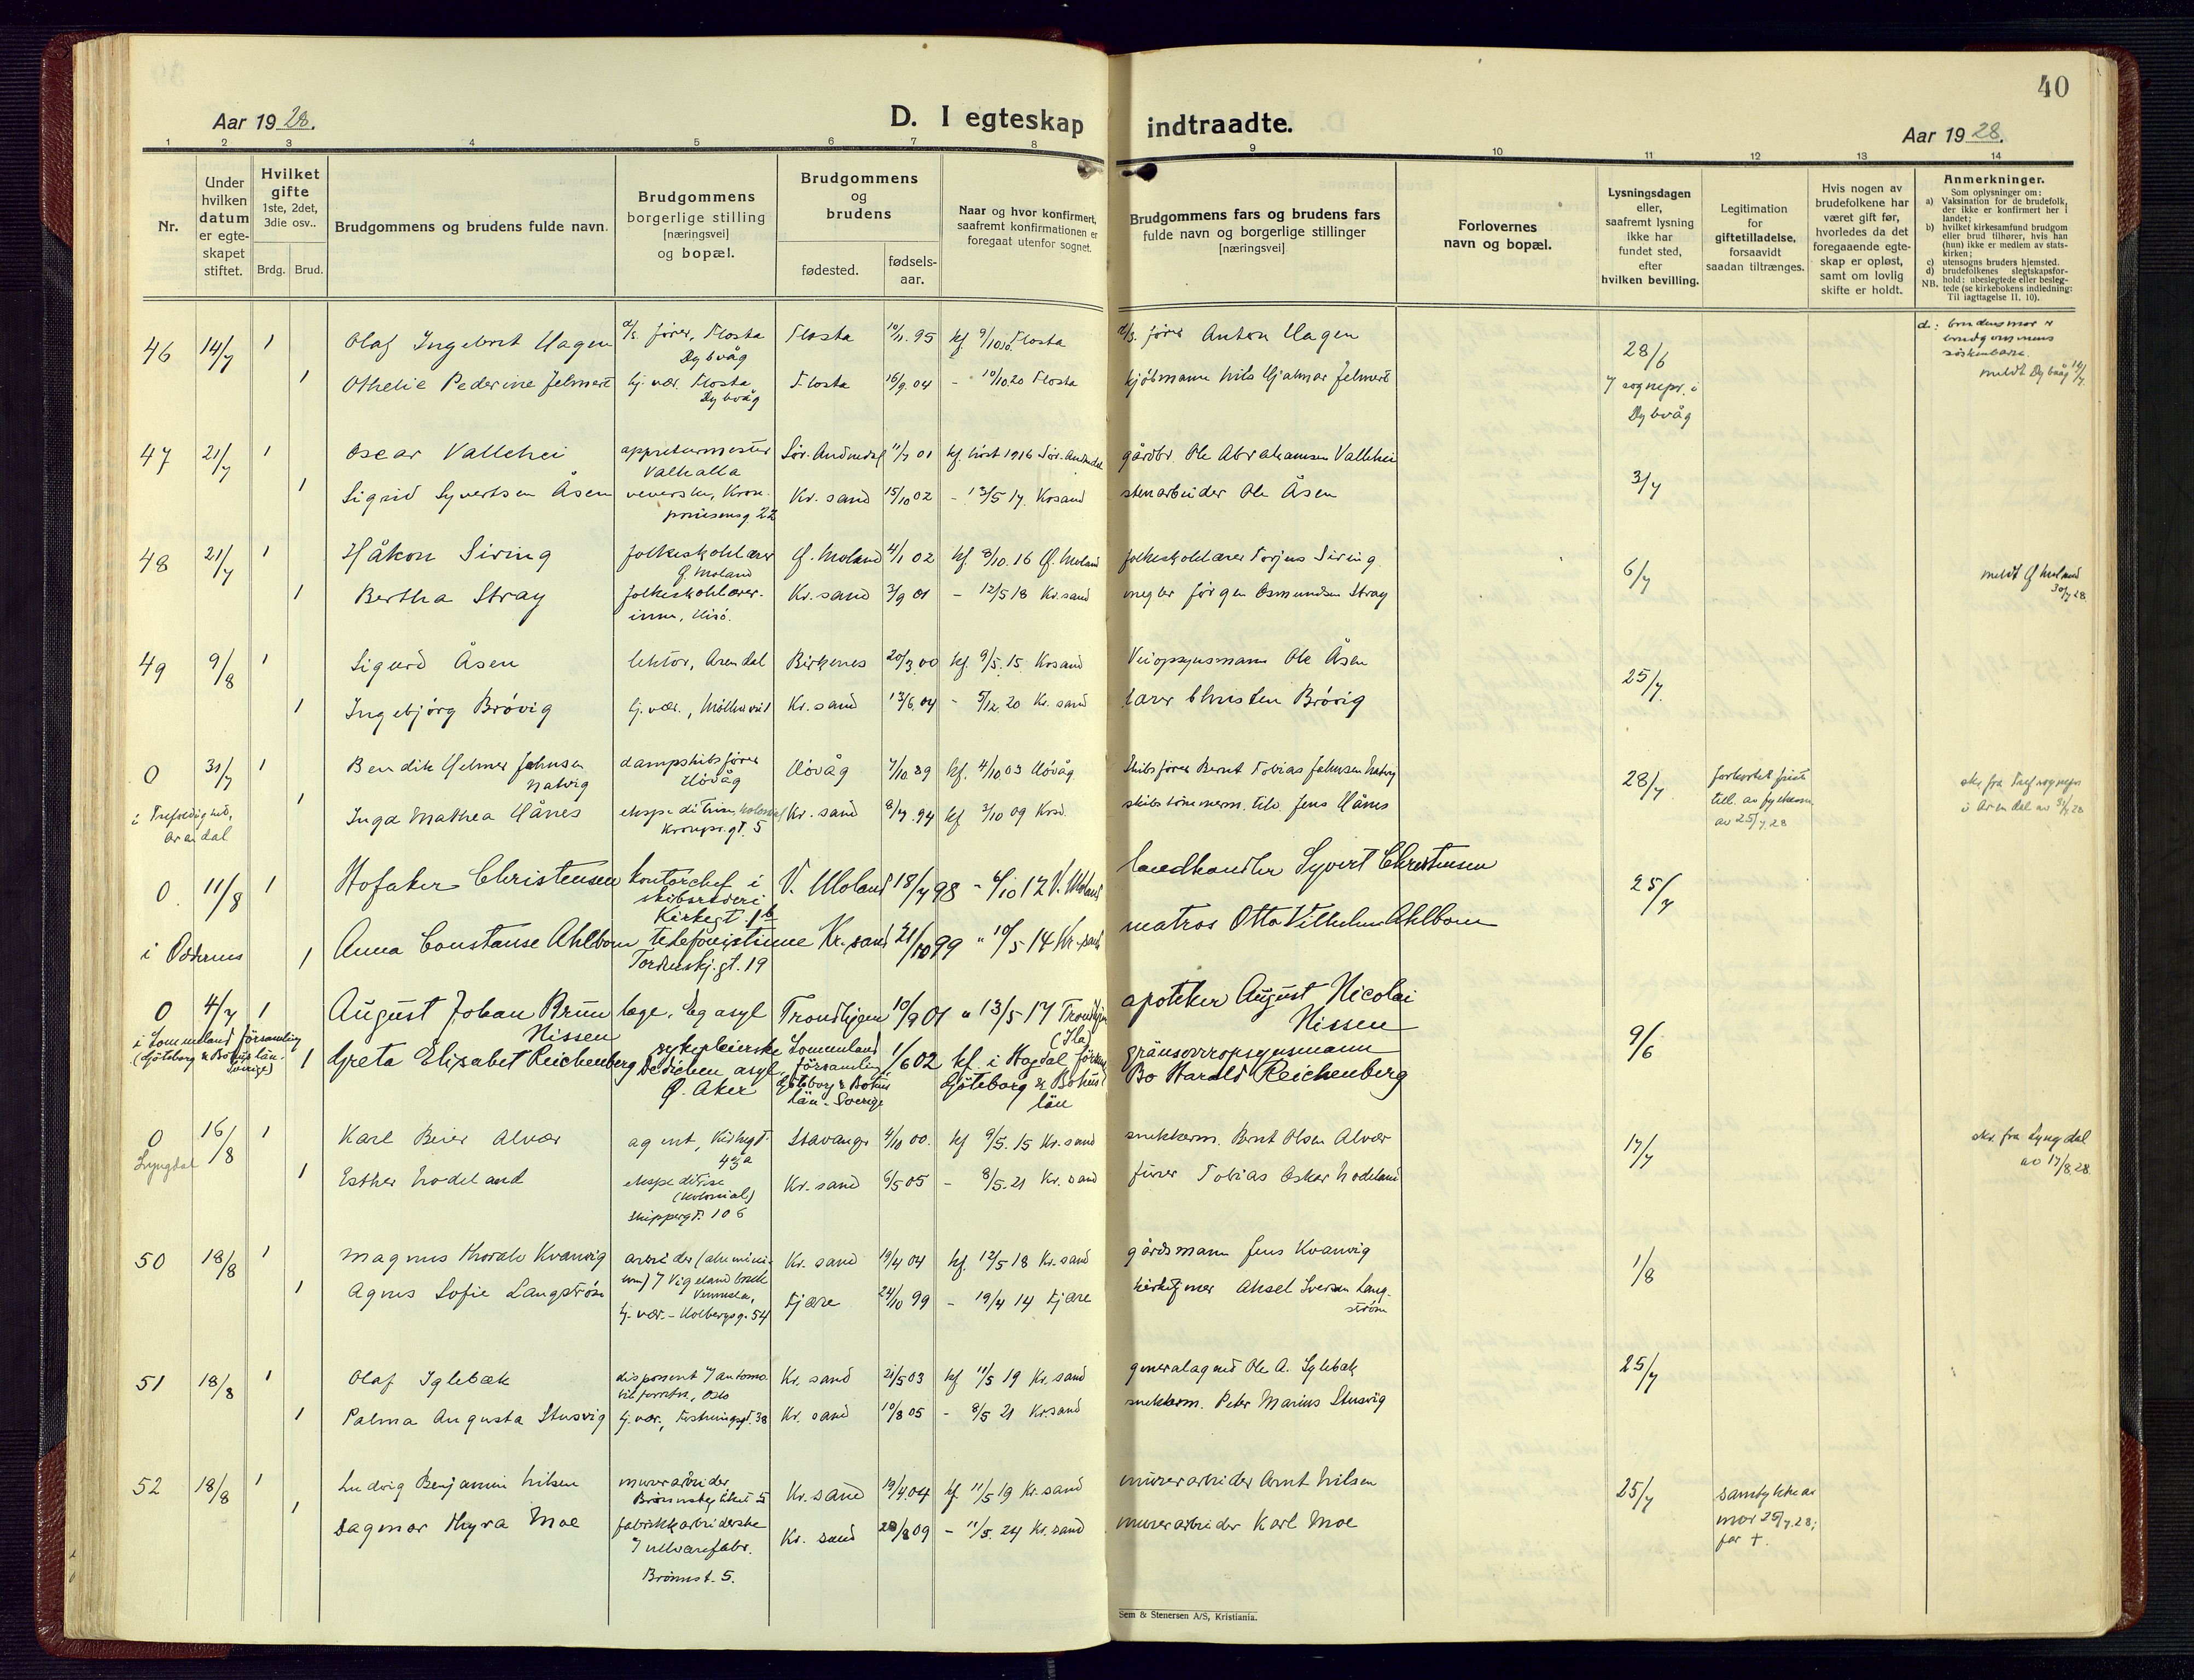 40
Aar 1928.
D. I egteskap indtraadte.
Aar 1928.
1 2 3 4 5 6 7 8 9 10 11 12 13 14
Nr.
Under hvilken datum er egteskapet stiftet.
Hvilket gifte
1ste, 2det, 3die osv..
Brdg. Brud.
Brudgommens og brudens fulde navn.
Brudgommens borgerlige stilling
[næringsvei]
og bopæl.
Brudgommens og brudens
fødested.
fødsels-aar.
Naar og hvor konfirmert, saafremt konfirmationen er foregaat utenfor sognet.
Brudgommens fars og brudens fars fulde navn og borgerlige stillinger
[næringsvei]
Forlovernes navn og bopæl.
Lysningsdagen eller, saafremt lysning ikke har fundet sted, efter hvilken bevilling.
Legitimation for giftetilladelse, forsaavidt saadan tiltrænges.
Hvis nogen av brudefolkene har været gift før, hvorledes da det foregaaende egteskap er opløst, samt om lovlig skifte er holdt.
Anmerkninger.
Som oplysninger om:
a) Vaksination for de brudefolk, der ikke er konfirmert her i landet;
b) hvilket kirkesamfund brudgom eller brud tilhører, hvis han (hun) ikke er medlem av statskirken;
c) utensogns bruders hjemsted.
d) brudefolkenes slegtskapsforhold: ubeslegtede eller beslegtede (se kirkebokens indledning: Til iagttagelse II. 10).
NB.
46 14/7 1 Olaf Ingebret Hagen d/s. fører, Flosta Dybvåg Flosta 10/11.95 kf. 9/10.10. Flosta d/s. fører Anton Hagen 28/6 d: brudens mor er brudgommens søskenbarn.
1 Othelie Pederine Jelmert hj. vær. Flosta, Dybvåg Flosta 16/9.04 - 10/10.20 Flosta kjøbmann Nils Hjalmar Jelmert sognepr. i Dybvåg meldt Dybvåg
47 21/7 1 Oscar Vallehei appreturmester Valhalla 11/7 01 kf. høst 1916 gårdbr. Ole Abrahamsen Vallehei 3/7
1 Sigrid Syvertsen Åsen veverske, Kronprinsensg. 22 Kr. sand 15/10 02 - 13/5 17. Krsand stenarbeider Ole Åsen
48 21/7 1 Håkon Siring folkeskolelærer Ø. Moland Ø. Moland 4/1 02 kf. 8/10.16 Ø. Moland folkeskolelærer Torjus Siring 6/7 meldt Ø Moland 30/7 28
1 Bertha Stray folkeskolelærerinne, Hisö. Kr. sand 3/9 01 - 12/5 18 Kr. sand megler Jørgen Osmundsen Stray
49 9/8 1 Sigurd Åsen lektor, Arendal Birkenes 20/3.00 kf. 9/5.15 Krsand Veiopsynsmann Ole Åsen 25/7
1 Ingebjørg Brøvig hj. vær., Kr. sand 13/6.04 - 5/12.20 Kr. sand lærer Christen Brøvig
0 31/7 1 Bendik Helmer Johnsen Natvig dampskibsfører Høvåg Høvåg 7/10 89 kf. 4/10 03 Høvåg. Skibsfører Bernt Tobias Johnsen Natvig 28/7 forkortet frist till. av fylkesm. av 25/7.28
i Trefoldighed, Arendal 1 Inga Mathea Hånes ekspeditrise, kolonial Kronpr.gt. 5 Kr. sand 8/7.94 kf 3/10 09 Krsd. skibstømmerm. Jens Hånes skr. fra i Arendal av
0. 11/8 1 Hofaker Christensen kontorchef i skibsrederi Kirkegt. 1b V. Moland 18/7 98 - 6/10 12 V. Moland landhandler Syvert Christensen 25/7
i Oddernes 1 Anna Constanse Ahlbom telefonistinne Tordenskj.gt. 19 Kr. sand 21/10 99 " 10/5 14 Kr. sand matros Otto Vilhelm Ahlbom
0 4/7 1 August Johan Brun Nissen læge, Eg asyl Trondhjem 10/9 01 " 13/5 17 Trondhjem (Ila) apoteker August Nicolai Nissen 9/6
i Lommeland församling (Göteborg & Bohus län. Sverige) 1 Greta Elisabet Reichenberg sykepleierske Dedichen asyl, Ø. Aker Lommeland församling, Göteborg & Bohus län - Sverige 1/6 02 kf. i Hogdal förs. Göteborg & Bohus län gränsopsynsmann Bo Harald Reichenberg
0 16/8 1 Karl Beier Alvær agent, Kirkegt. 43a Stavanger 4/10 00. kf 9/5.15 Kr. sand snekkerm. Bernt Olsen Alvær 17/7 skr. fra Lyngdal av 17/8.28
Lyngdal 1 Esther Nodeland ekspeditrise (kolonial) Skippergt. 106 Kr. sand 6/5 05 - 8/5.21 Kr. sand fører Tobias Oskar Nodeland
50 18/8 1 Magnus Thoralv Kvanvig arbeider (aluminium) / Vigeland bruk Vennesla, Kr. sand 19/4 04 kf. 12/5 18 Kr. sand gårdsmann Jens Kvanvig 1/8
1 Agnes Sofie Langstrøm hj. vær. - Holbergsg. 54 Fjære 24/10 99 - 19/4 14 Fjære Aksel Iversen Langstrøm
51 18/8 1 Olaf Iglebæk disponent / automobilforretn., Oslo Kr. sand 21/5 03 kf 11/5 19 Kr. sand generalagent Ole A. Iglebæk 25/7
1 Palma Augusta Stusvig hj. vær., Festningsgt. 38 Kr. sand 10/8 05 - 8/5 21 Kr. sand snekkerm. Peter Marius Stusvig
52 18/8 1 Ludvig Benjamin Nilsen murerarbeider 5 Kr. sand 19/4.04 kf 11/5 19 Kr. sand murerarbeider Arnt Nilsen 25/7 samtykke av mor 25/7.28; far †.
1 Dagmar Thyra Moe fabrikkarbeiderske / ullvarefabr. Brønnst. 5. Kr. sand 28/8 09 - 11/5.24 Kr. sand murerarbeider Karl Moe
Sem & Stenersen A/S, Kristiania.